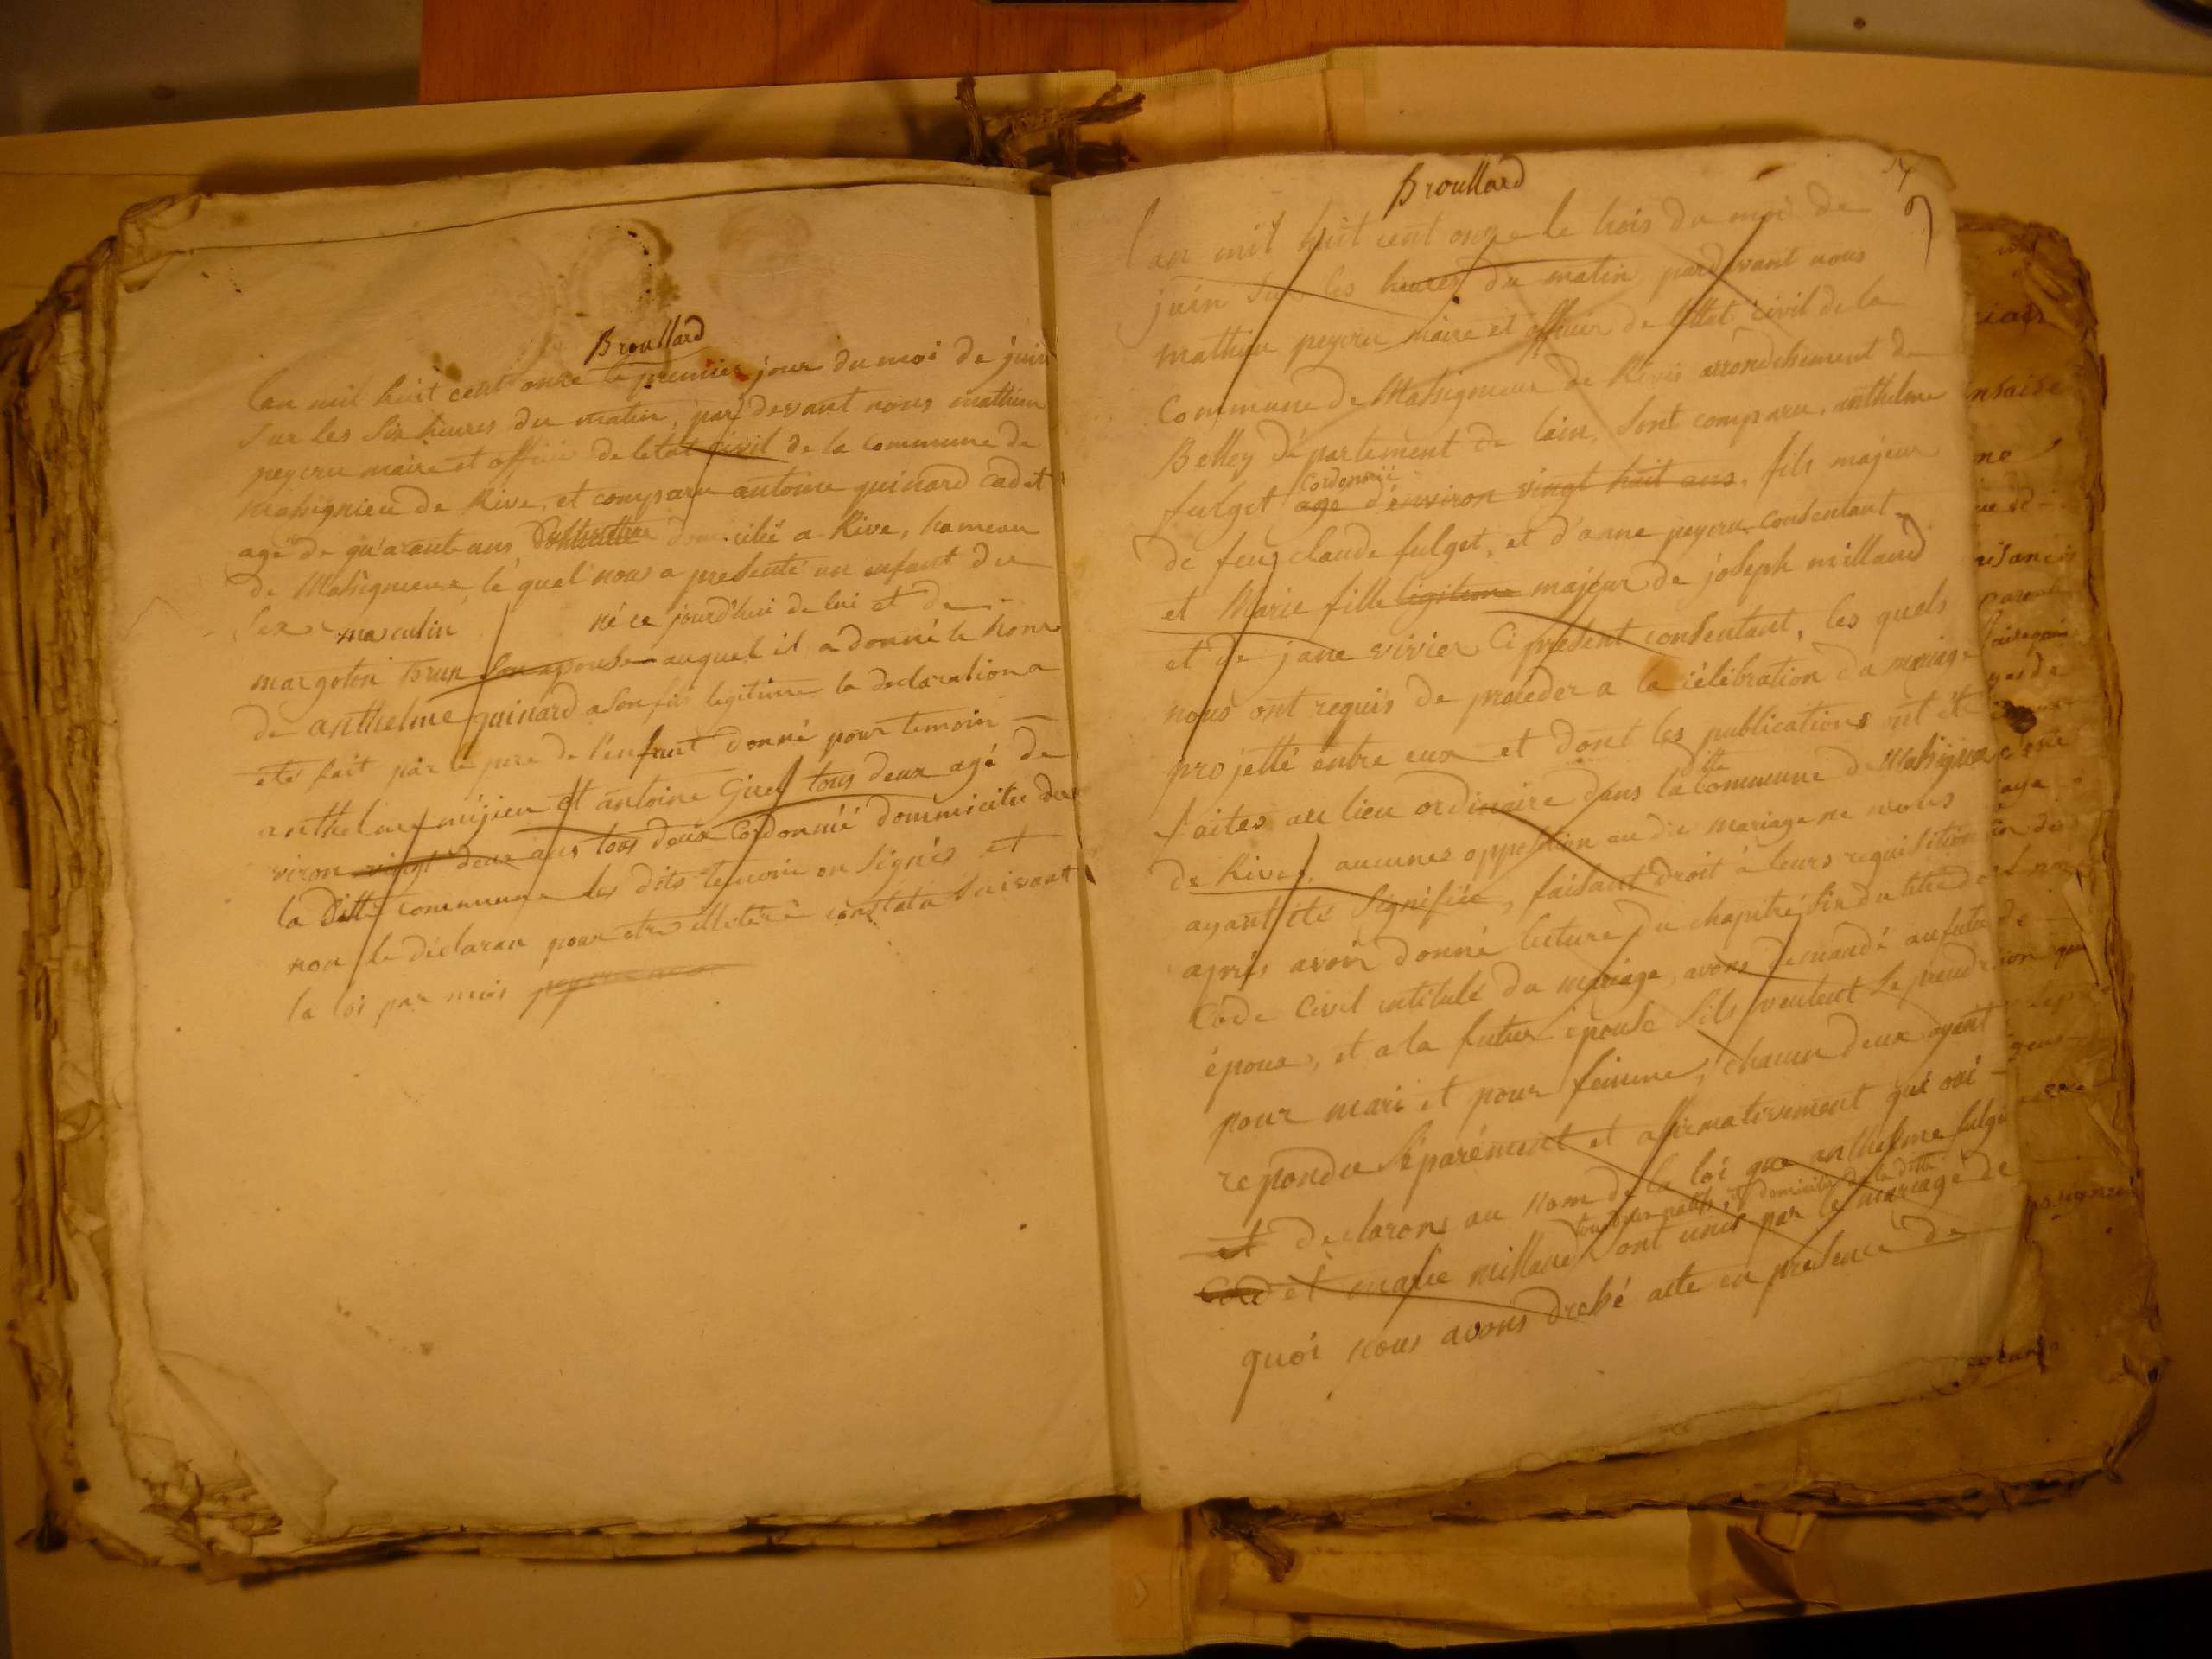 Broullard
lan mil huit cent onze le premier jour du moi de juin
sur les six heures du matin, par devant nous mathieu
peycru maire et officié de letat civil de la commune de
massignieu de Rive, et comparu antoine guinard cadet
agé de qu'arante ans domicilié a Rive, hameau
de Massignieux, le quel nous a presenté un enfant du
sexe masculin né ce jourd'hui de lui et de
margoton brun son epouse auquel il a donné le nom
de anthelme guinard a son fis legitime la declaration a
eté fait par le pere de l'enfant donné pour temoin
anthelme mijieu et antoine Giret tous deux agé de
viron vingt deux ans tous deux Cordonnié dommicilié de
la ditte commune les dits temoin on signés et
non le déclaran pour etre illetéré constata suivant
la loi par moi
Broullard
57
l'an mil huit cent onze le trois du moi de
juin sur les heures du matin, pardevant nous
mathieu peycru maire et officier de l'Etat civil de la
Commune de Massigneux de Rives arrondissement de
Belley département de lain, sont comparu, anthelme
Cordonnié
fulget agé d'environ vingt huit ans, fils majeur
de feu claude fulget, et d'anne peycru consentant
et Marie fille legitime majeur de joseph milland
et de jane vivier ci present consentant, les quels
nous ont requis de proceder a la célébration du mariage
projetté entre eux et dont les publications ont été
ditte
faites au lieu ordinaire dans la Commune de Massigneux
de Rives, aucunes opposition au dit mariage ne nous
ayant été signifiée, faisant droit à leurs requisition
après avoir donné lecture du chapitre six du titre du
Code Civil intitulé du mariage, avons demandé au futur
époux, et a la futur épouse sils veulent se prendre
pour mari et pour femme, chacun deux ayant
repondu séparément et affirmativement qué oui
et declarons au nom de la loi que anthelme fulget
tous deux natifs et domicilié de la ditte
Cord et marie milland sont unis par le mariage de
quoi nous avons dressé acte en presence de